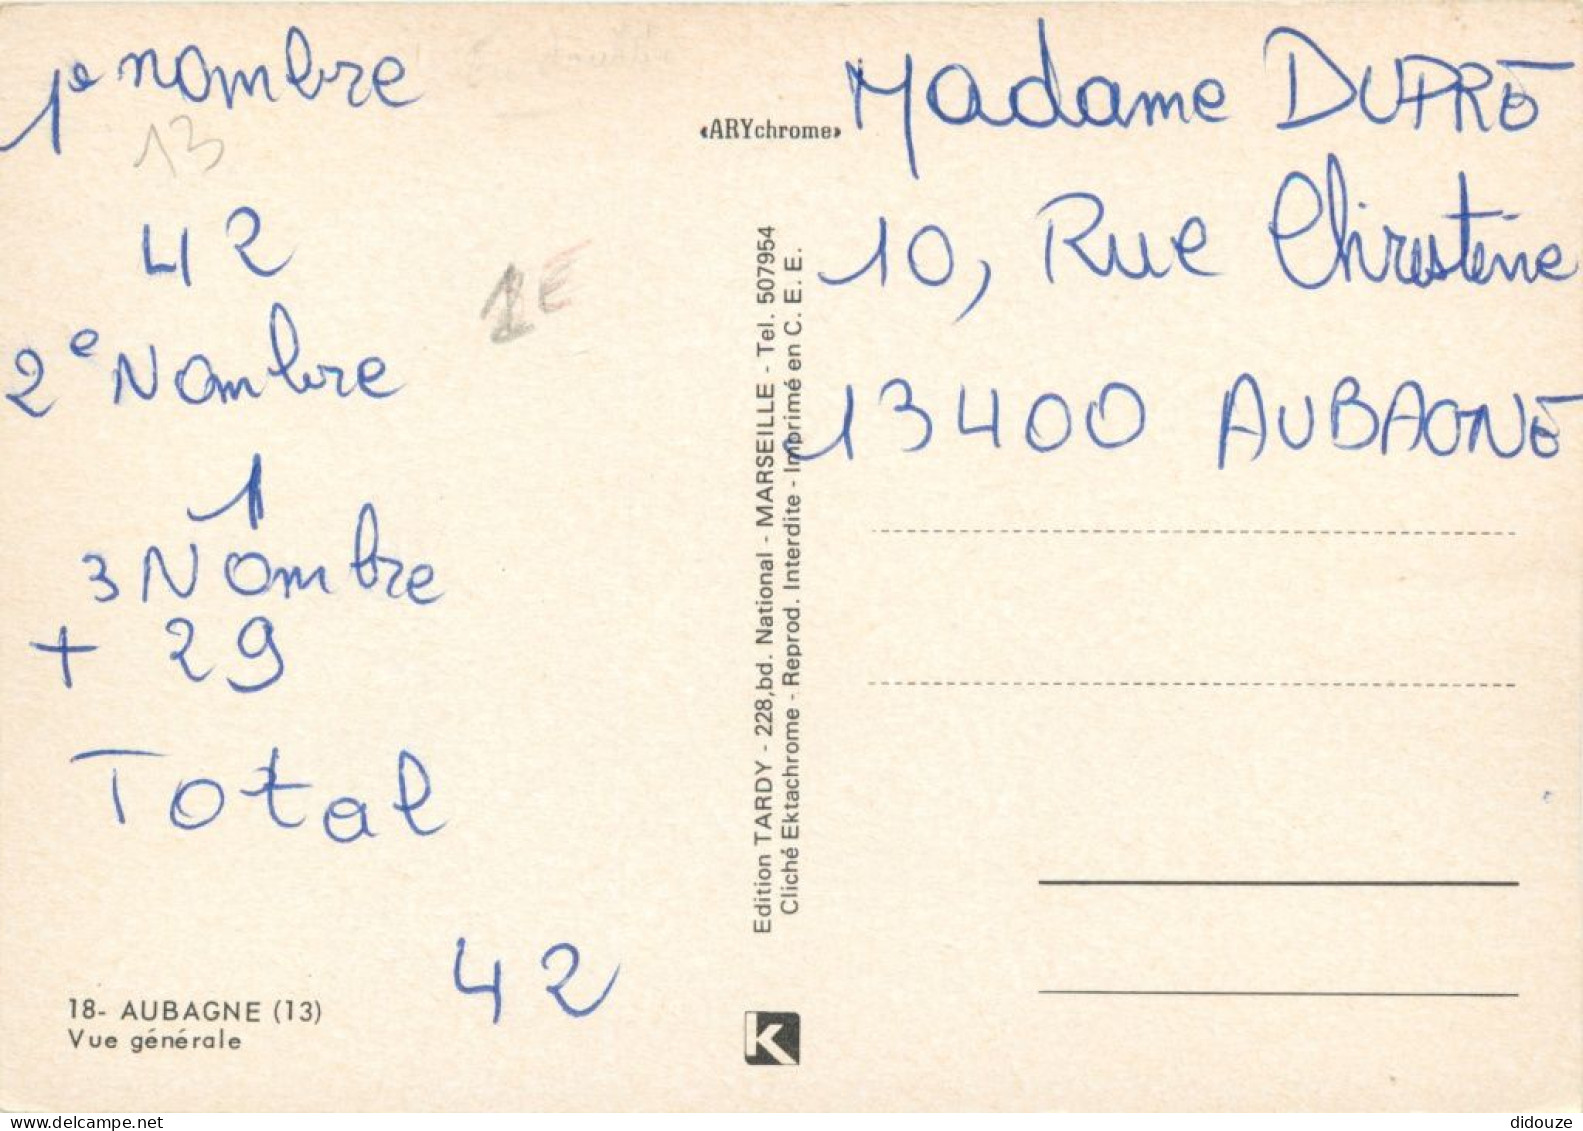 1e nombre
13
42
2e Nombre
1
3 Nombre
+ 29
Total
42
1E
18- AUBAGNE (13)
Vue générale
«ARYchrome»
Edition TARDY - 228,bd. National - MARSEILLE - Tel. 507954
Cliché Ektachrome - Reprod. Interdite - Imprimé en C. E. E.
K
Madame DUPRE
10, Rue Christine
13400 AUBAGNE
didouze